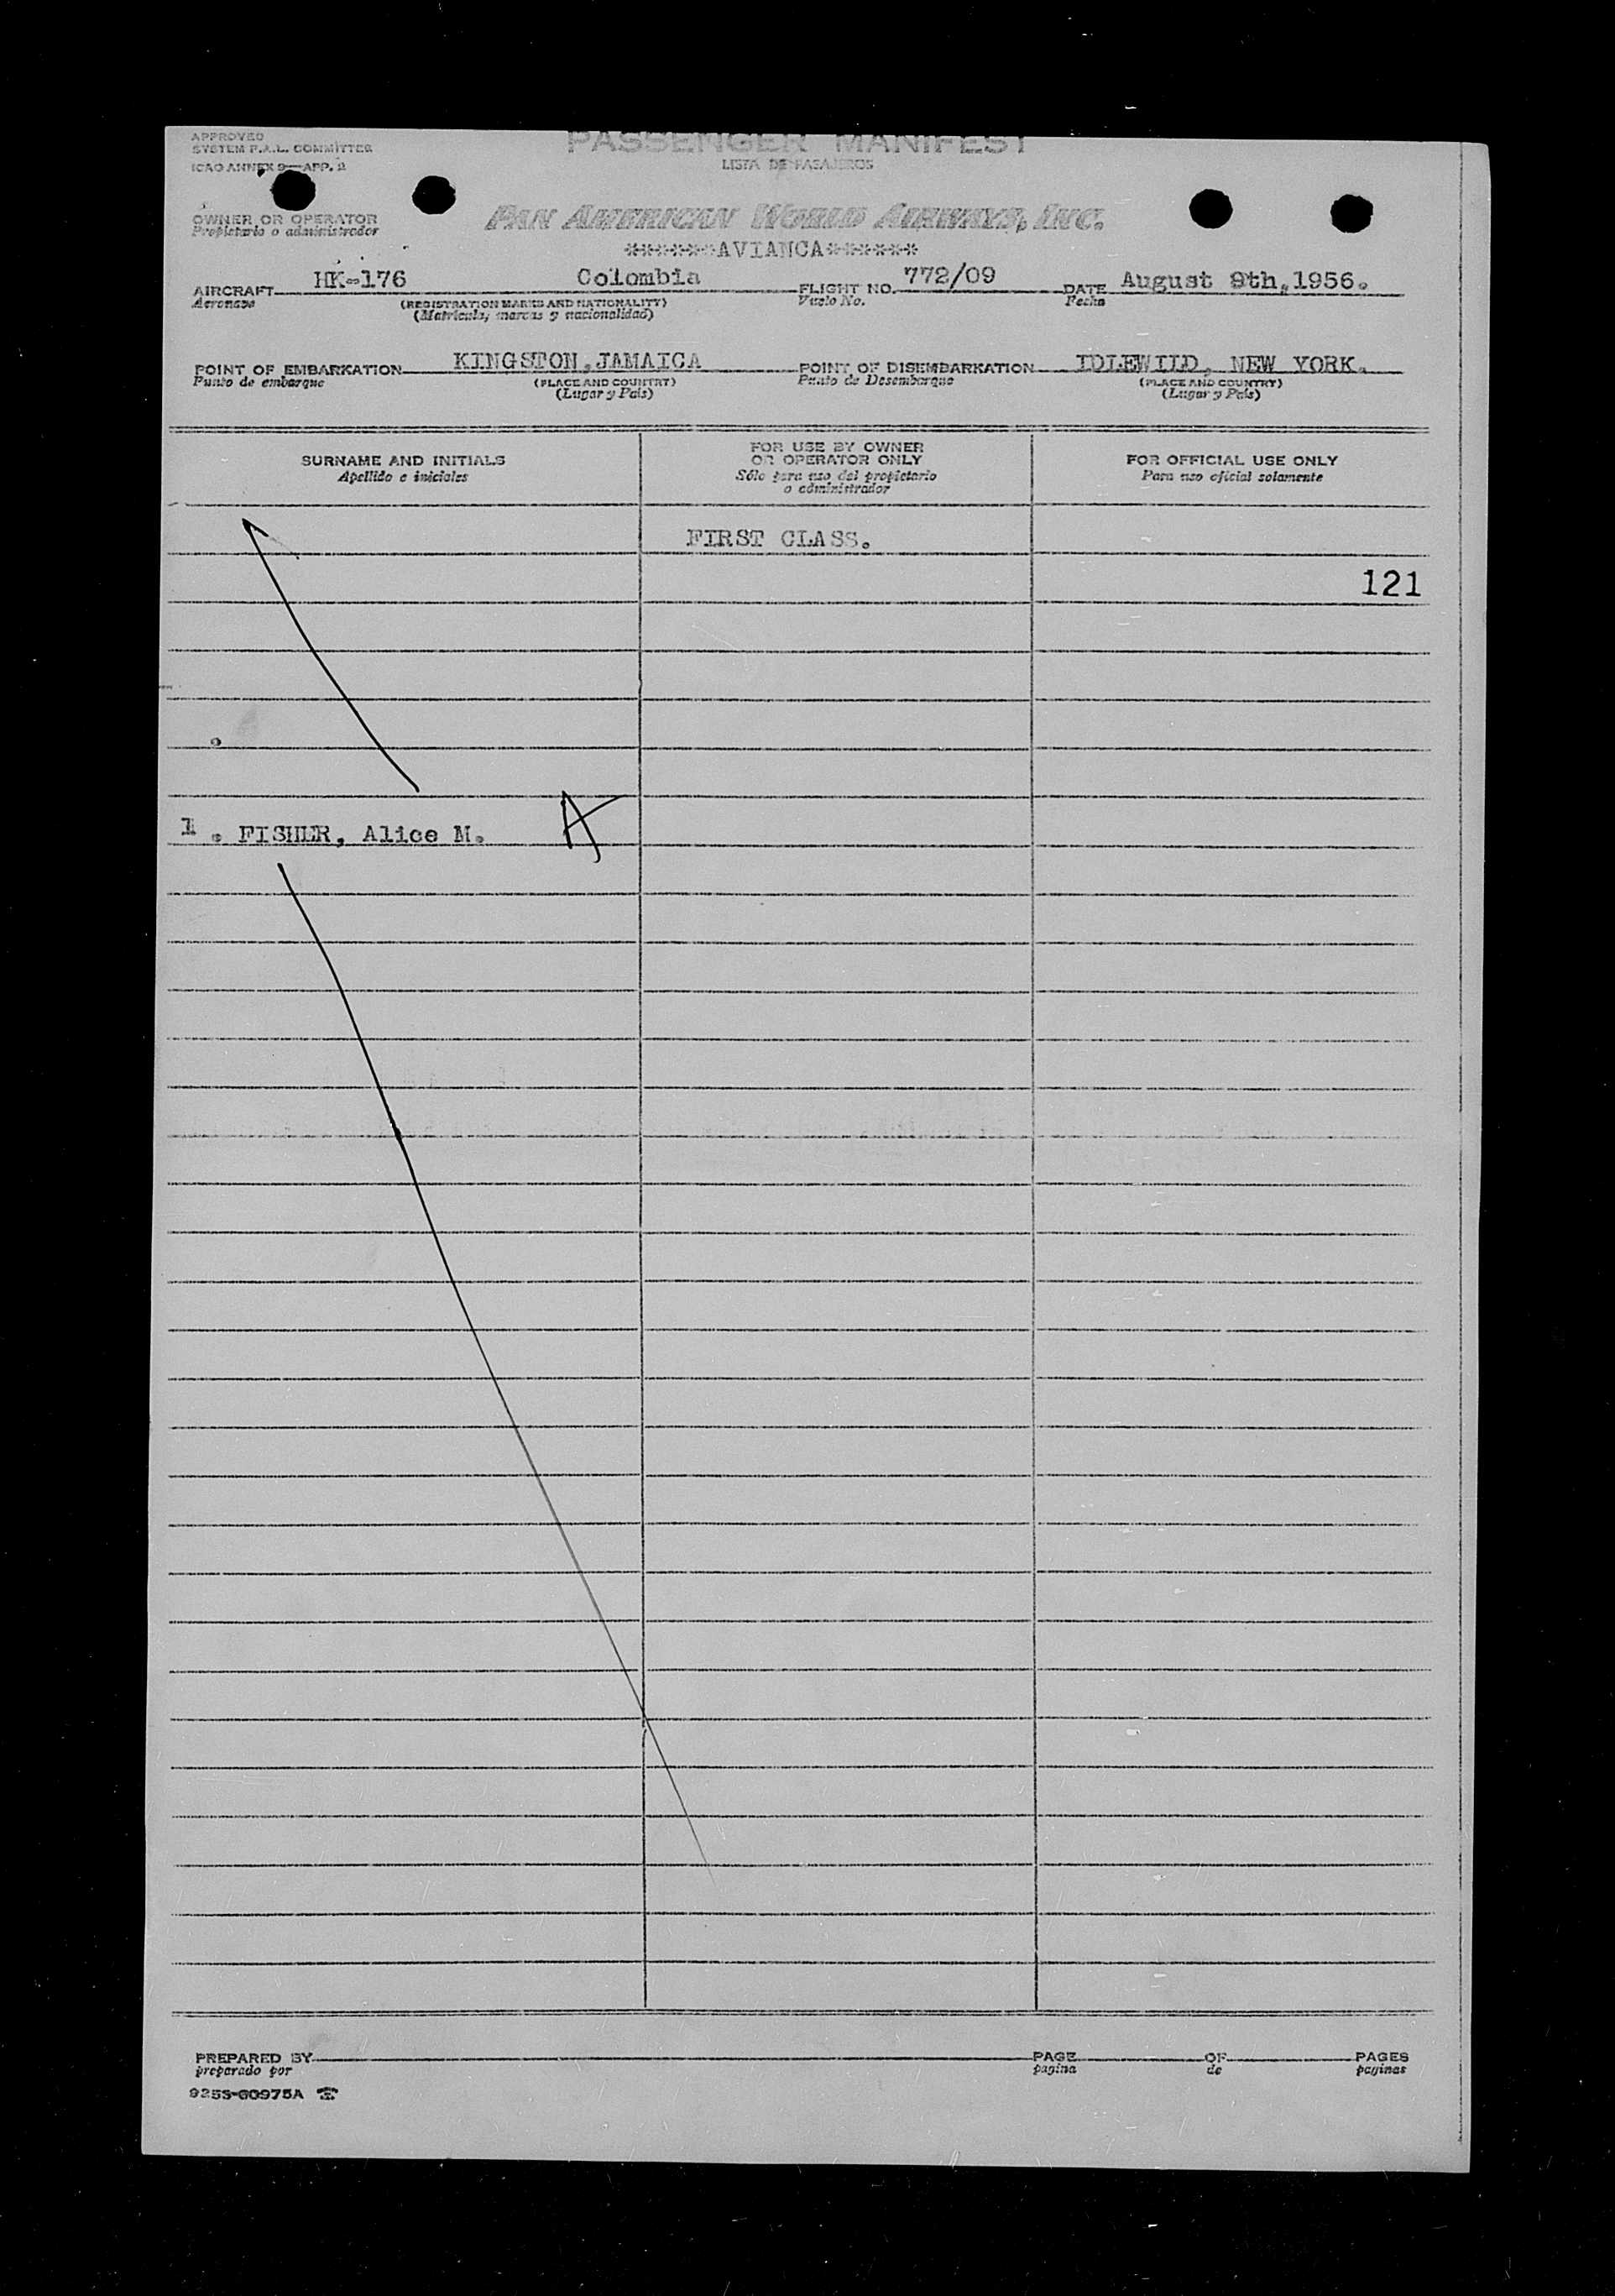 APPROVED
SYSTEM P.A.L. COMMITTEE
ICAO ANNEX 9—APP. 2
PASSENGER MANIFEST
LISTA DE PASAJEROS
OWNER OR OPERATOR
Propietario o administrador
PAN AMERICAN WORLD AIRWAYS, INC.
******AVIANCA******
AIRCRAFT HK-176 Colombia FLIGHT NO. 772/09 DATE August 9th, 1956.
Aeronave (REGISTRATION MARKS AND NATIONALITY) Vuelo No. Fecha
(Matricula, marcas y nacionalidad)
POINT OF EMBARKATION KINGSTON, JAMAICA POINT OF DISEMBARKATION IDLEWILD, NEW YORK.
Punto de embarque (PLACE AND COUNTRY) Punto de Desembarque (PLACE AND COUNTRY)
(Lugar y País) (Lugar y País)
SURNAME AND INITIALS
Apellido e iniciales
FOR USE BY OWNER
OR OPERATOR ONLY
Sólo para uso del propietario
o administrador
FOR OFFICIAL USE ONLY
Para uso oficial solamente
FIRST CLASS.
121
1 . FISHER, Alice M. A
PREPARED BY PAGE OF PAGES
preparado por pagina de paginas
925S-60975A